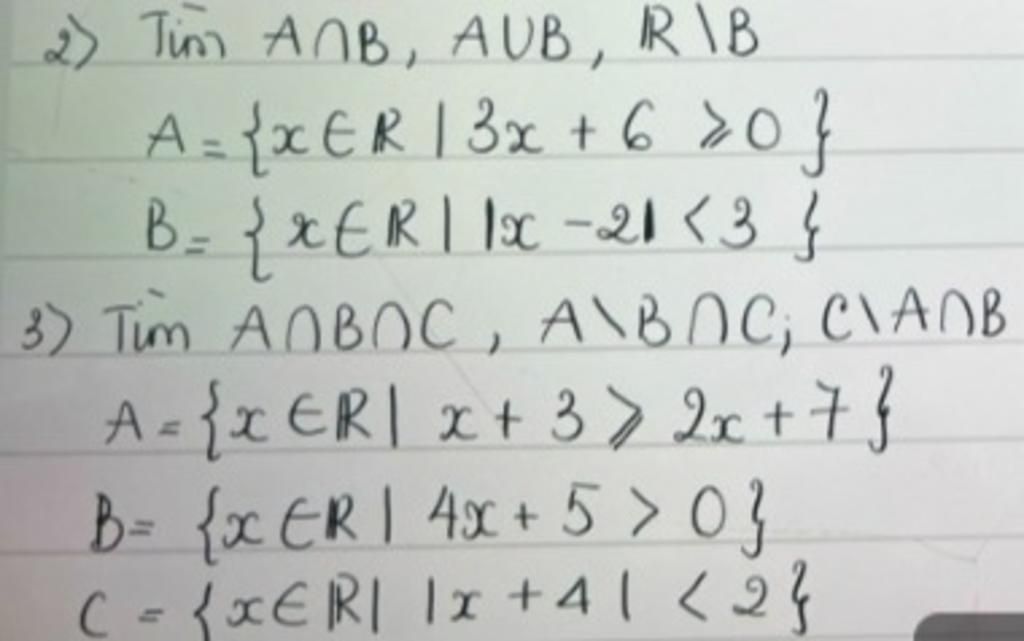 2) Tìm A∩B, A∪B, ℝ\B
A = {x ∈ ℝ | 3x + 6 ⩾ 0}
B = {x ∈ ℝ | |x - 2| < 3}
3) Tìm A∩B∩C, A\B∩C; C\A∩B
A = {x ∈ ℝ | x + 3 ⩾ 2x + 7}
B = {x ∈ ℝ | 4x + 5 > 0}
C = {x ∈ ℝ | |x + 4| < 2}